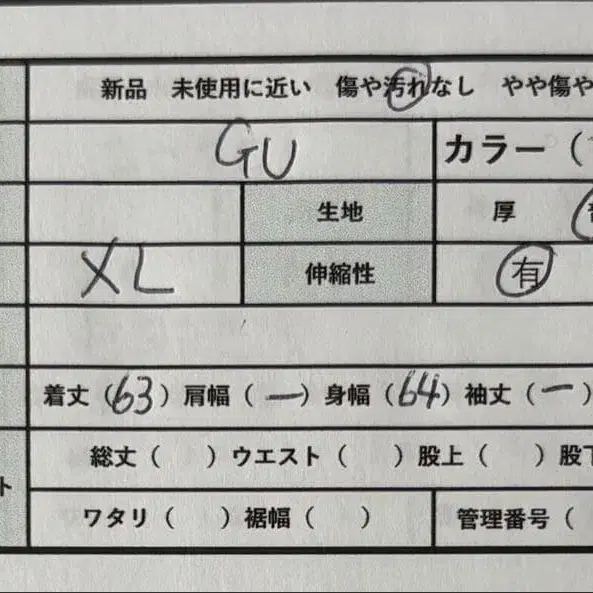 新品 未使用に近い 傷や汚れなし やや傷や
GU カラー（
生地 厚
XL 伸縮性 有
着丈（63）肩幅（ー）身幅（64）袖丈（ー）
総丈（ ）ウエスト（ ）股上（ ）股下
ト
ワタリ（ ）裾幅（ ） 管理番号（